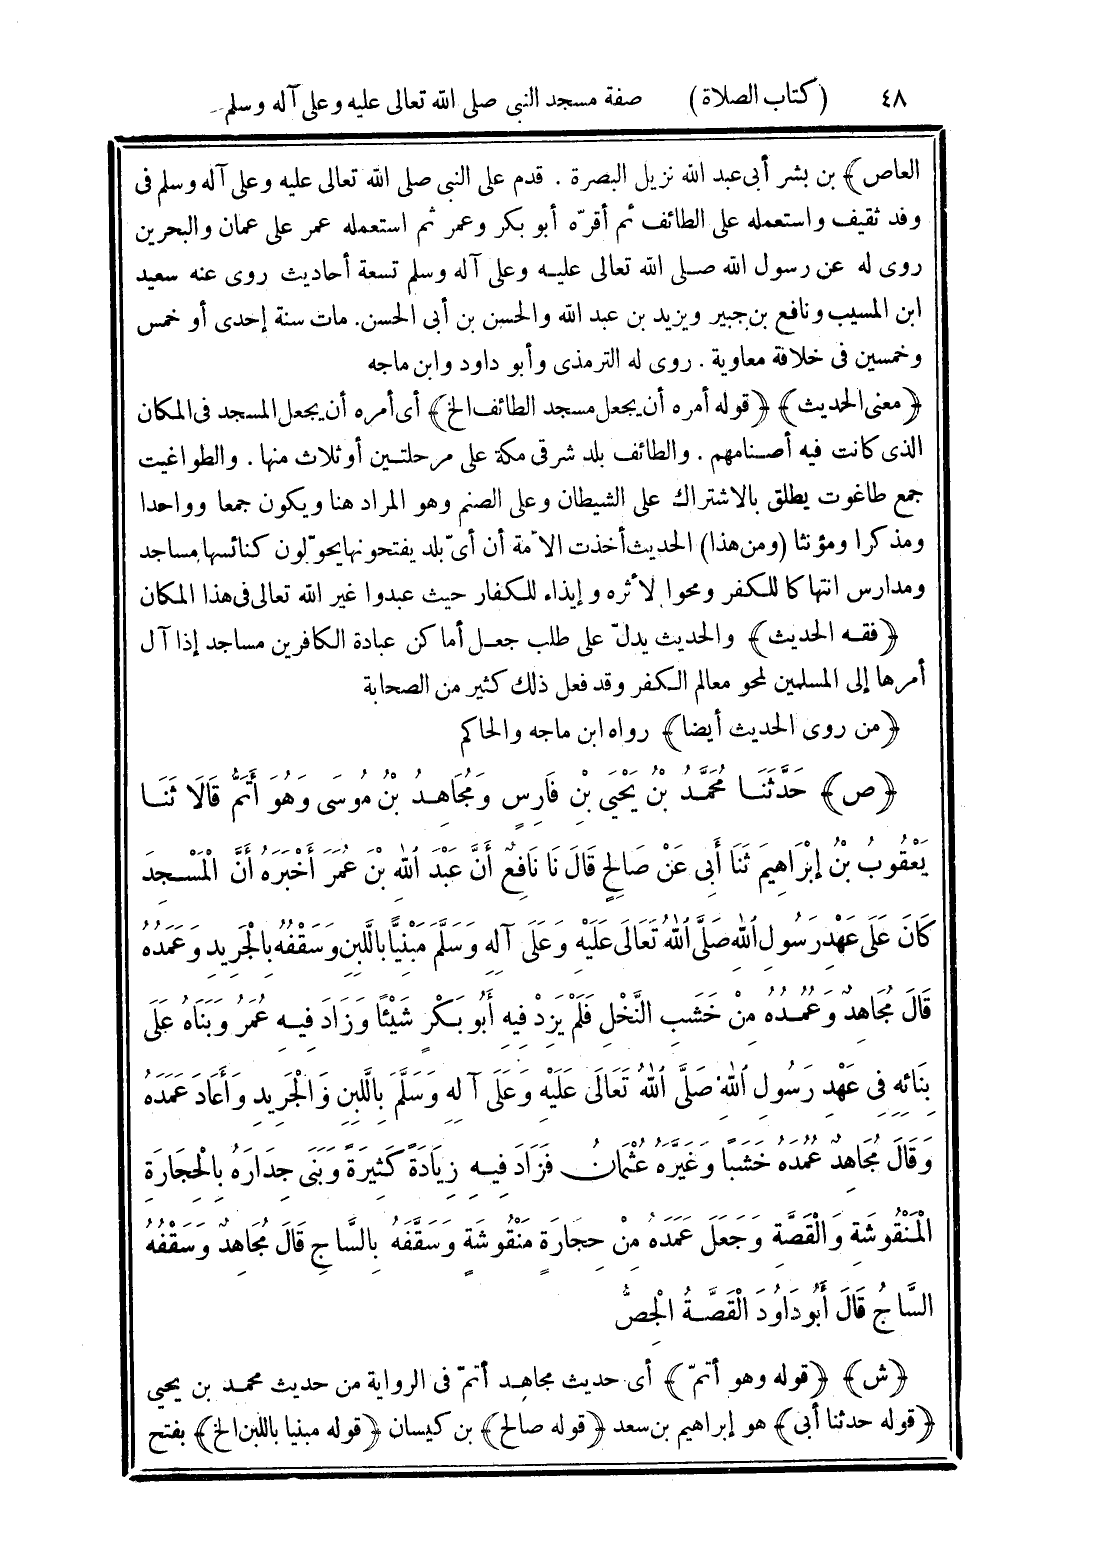 ٤٨ (كتاب الصلاة) صفة مسجد النبى صلى الله تعالى عليه وعلى آله وسلم
العاص﴾ بن بشر أبى عبد الله نزيل البصرة . قدم على النبى صلى الله تعالى عليه وعلى آله وسلم فى
وفد ثقيف واستعمله على الطائف ثم أقرّه أبو بكر وعمر ثم استعمله عمر على عمان والبحرين
روى له عن رسول الله صلى الله تعالى عليه وعلى آله وسلم تسعة أحاديث روى عنه سعيد
ابن المسيب ونافع بن جبير ويزيد بن عبد الله والحسن بن أبى الحسن. مات سنة إحدى أو خمس
وخمسين فى خلافة معاوية . روى له الترمذى وأبو داود وابن ماجه
﴿معنى الحديث﴾ ﴿قوله أمره أن يجعل مسجد الطائف الخ﴾ أى أمره أن يجعل المسجد فى المكان
الذى كانت فيه أصنامهم . والطائف بلد شرقى مكة على مرحلتين أو ثلاث منها . والطواغيت
جمع طاغوت يطلق بالاشتراك على الشيطان وعلى الصنم وهو المراد هنا ويكون جمعا وواحدا
ومذكرا ومؤنثا (ومن هذا) الحديث أخذت الأمة أن أىّ بلد يفتحونها يحوّلون كنائسها مساجد
ومدارس انتهاكا للكفر ومحوا لأثره وإيذاء للكفار حيث عبدوا غير الله تعالى فى هذا المكان
﴿فقه الحديث﴾ والحديث يدلّ على طلب جعل أماكن عبادة الكافرين مساجد إذا آل
أمرها إلى المسلمين لمحو معالم الكفر وقد فعل ذلك كثير من الصحابة
﴿من روى الحديث أيضا﴾ رواه ابن ماجه والحاكم
﴿ص﴾ حَدَّثَنَا مُحَمَّدُ بْنُ يَحْيَى بْنِ فَارِسٍ وَمُجَاهِدُ بْنُ مُوسَى وَهُوَ أَتَمُّ قَالَا ثَنَا
يَعْقُوبُ بْنُ إِبْرَاهِيمَ ثَنَا أَبِى عَنْ صَالِحٍ قَالَ نَا نَافِعٌ أَنَّ عَبْدَ اللهِ بْنَ عُمَرَ أَخْبَرَهُ أَنَّ الْمَسْجِدَ
كَانَ عَلَى عَهْدِ رَسُولِ اللهِ صَلَّى اللهُ تَعَالَى عَلَيْهِ وَعَلَى آلِهِ وَسَلَّمَ مَبْنِيًّا بِاللَّبِنِ وَسَقْفُهُ بِالْجَرِيدِ وَعَمَدُهُ
قَالَ مُجَاهِدٌ وَعُمُدُهُ مِنْ خَشَبِ النَّخْلِ فَلَمْ يَزِدْ فِيهِ أَبُو بَكْرٍ شَيْئًا وَزَادَ فِيهِ عُمَرُ وَبَنَاهُ عَلَى
بِنَائِهِ فِى عَهْدِ رَسُولِ اللهِ صَلَّى اللهُ تَعَالَى عَلَيْهِ وَعَلَى آلِهِ وَسَلَّمَ بِاللَّبِنِ وَالْجَرِيدِ وَأَعَادَ عَمَدَهُ
وَقَالَ مُجَاهِدٌ عُمُدَهُ خَشَبًا وَغَيَّرَهُ عُثْمَانُ فَزَادَ فِيهِ زِيَادَةً كَثِيرَةً وَبَنَى جِدَارَهُ بِالْحِجَارَةِ
الْمَنْقُوشَةِ وَالْقَصَّةِ وَجَعَلَ عَمَدَهُ مِنْ حِجَارَةٍ مَنْقُوشَةٍ وَسَقَّفَهُ بِالسَّاجِ قَالَ مُجَاهِدٌ وَسَقْفُهُ
السَّاجُ قَالَ أَبُو دَاوُدَ الْقَصَّةُ الْجِصُّ
﴿ش﴾ ﴿قوله وهو أتمّ﴾ أى حديث مجاهد أتمّ فى الرواية من حديث محمد بن يحيي
﴿قوله حدثنا أبى﴾ هو إبراهيم بن سعد ﴿قوله صالح﴾ بن كيسان ﴿قوله مبنيا باللبن الخ﴾ بفتح